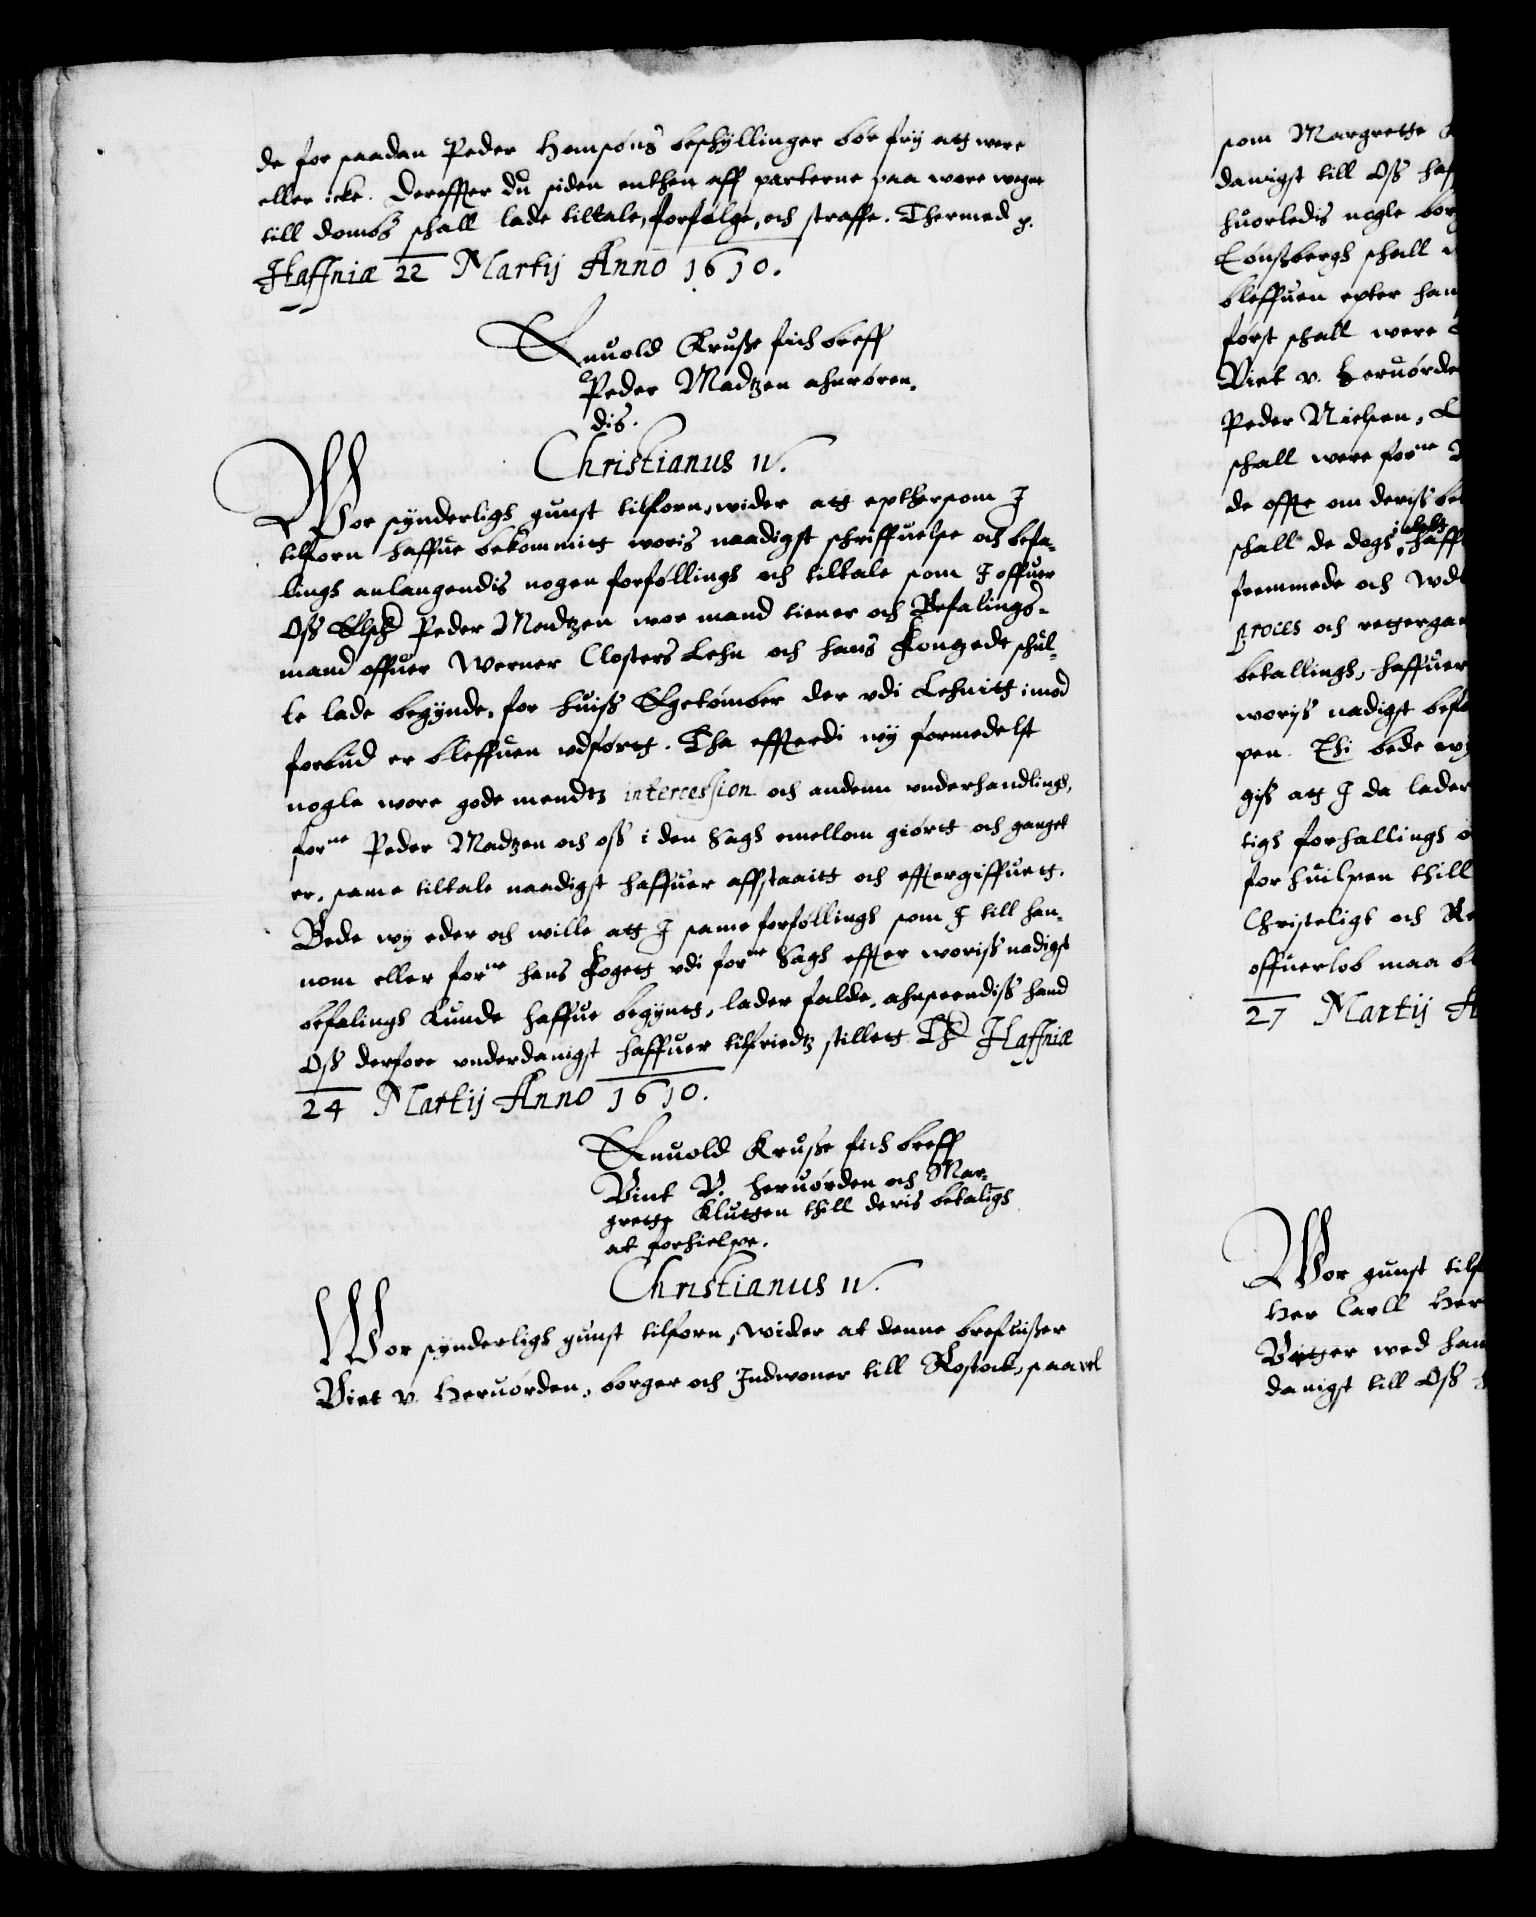 de for saadan Peder Hansøns beschyllinger bør frij att were
eller icke. Dereffter du siden enthen aff parterne paa wore wegne
till dombs schall lade tiltale, forfølge, och straffe. Thermed p.
Haffniæ 22 Martij Anno 1610.
Enuold Krusse fich breff
Peder Madtzen ahnrøren,
dis.
Christianus IV.
Wor synderligh gunst tilforn, wider att epthersom I
tilforn haffue bekommitt woris naadigst schriffuelse och befa,
lingh anlangendis nogen forføllingh och tiltale som I offuer
Oss Elsch Peder Madtzen wor mand tiener och Befalings,
mand offuer Werner Closters Lehn och hans fougede schul,
le lade begynde, for huiss Egetømber der udi Lehnitt imod
forbud er bleffuen udførtt. Tha efftterdi wij formedelst
nogle wore gode mendtz intercession och andenn underhandlingh,
forne Peder Madtzen och oss i den Sagh emellom giørtt och ganget
er, same tiltale naadigst haffuer affstaaitt och efftergiffuett.
Bede wy eder och wille att I same forføllingh som I till han,
nom eller forne hans fogett udi forne Sagh effter woriss nadigst
befalingh kunde haffue begyntt, lader falde, ahnseendiss hand
Oss derfore underdanigst haffuer tilfriedtz stillett Th Haffniæ
24 Martij Anno 1610.
Enuold Krusse fich breff
Viut V. heruørden och Mar,
grette Klutten thill deris betaligh
at forhielpe.
Christianus IV.
Wor synderligh gunst tilforn, Wider at denne brefuisser
Viet v. Heruørden, borger och Indwoner till Rostock, saauel
som Margrette
danigst till Oss haf
huorledis nogle bor
Tønssbergh schall
bleffuen epter han
først schall were
Viet v. Heruørde
Peder Nielsen,
schall were forne
de offte om deriss be
schall de dogh inthet haff
fremmede och Wdl
proces och rettergan
betallingh, haffuer
worjs nadigst befa
pen. Thi bede wy
giss att I da lader
tigh forhallingh
forhuilpen thill
Christeligt och Re
offuerlob maa b
27 Martij A
Wor gunst tilf
Her Carll Her
Bytger wed han
danigst till Oss